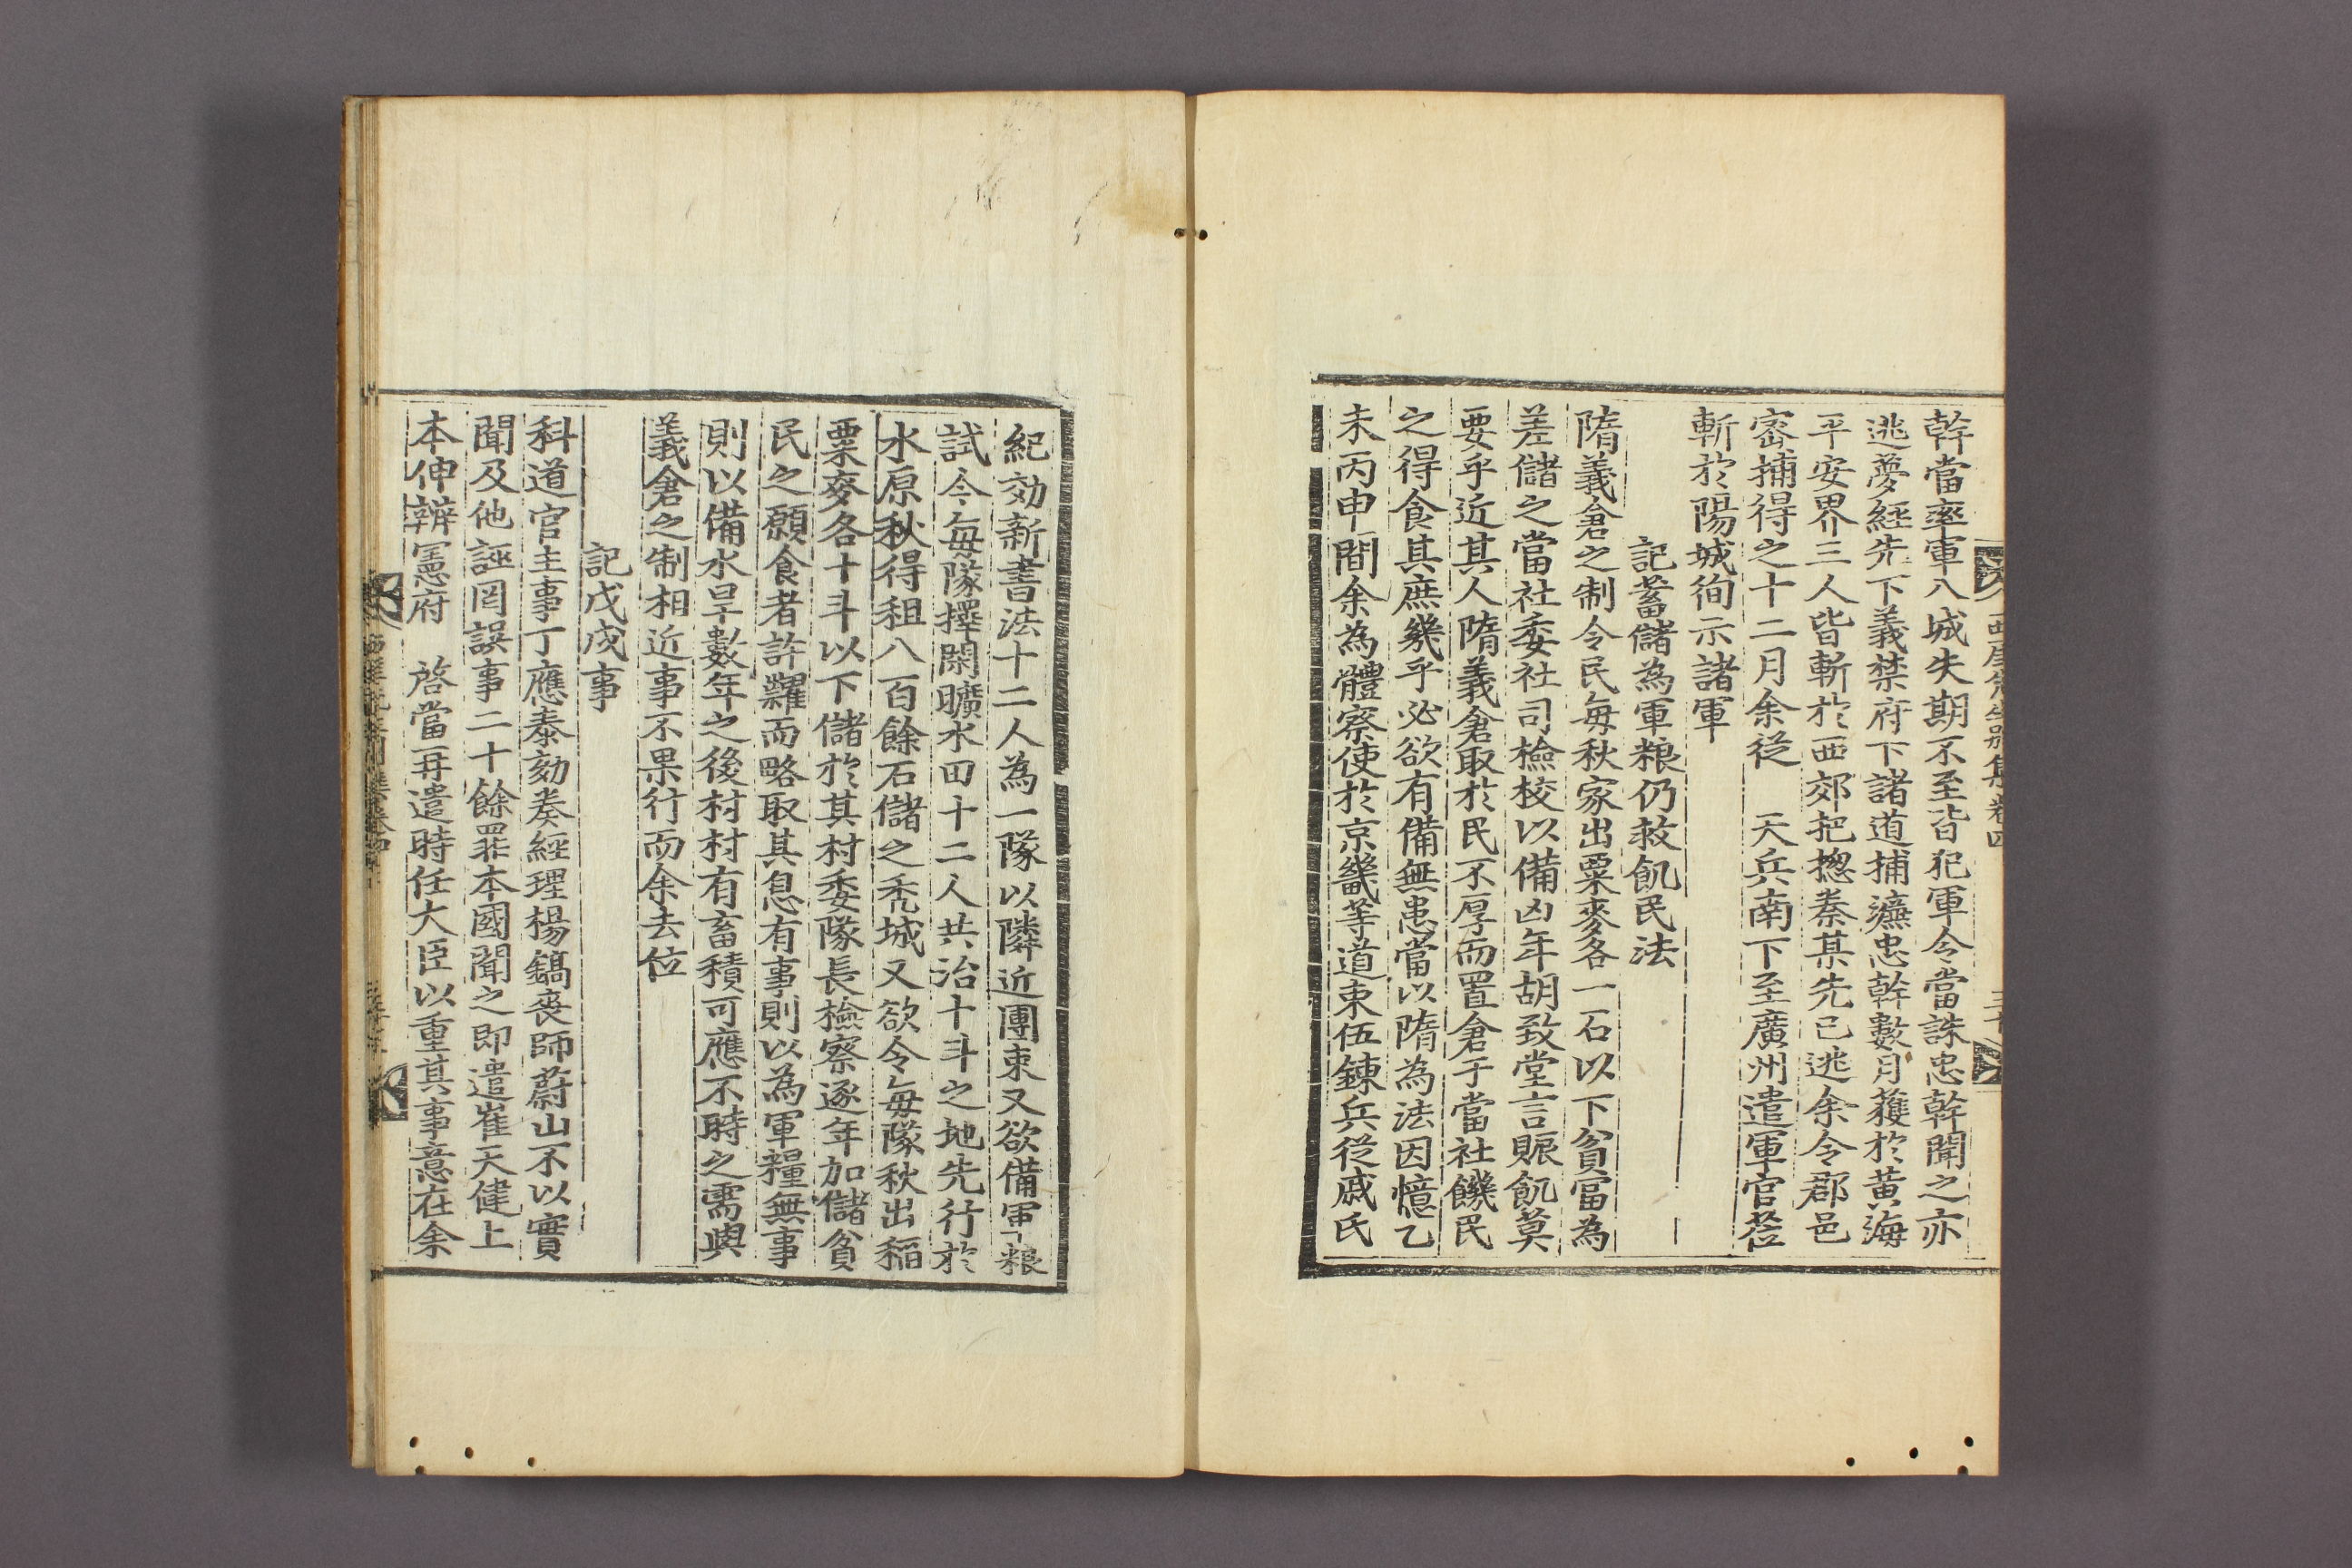 幹當率軍入城失期不至皆犯軍令當誅忠幹聞之亦
逃夢經先下義禁府下諸道捕瀛忠幹數月獲於黃海
平安界三人皆斬於西郊把摠秦某先已逃余令郡邑
密捕得之十二月余從　天兵南下至廣州遣軍官苙
斬於陽城徇示諸軍
記蓄儲為軍粮仍救飢民法
隋義倉之制令民每秋家出粟麥各一石以下貧富為
差儲之當社委社司檢校以備凶年胡致堂言賑飢莫
要乎近其人隋義倉取於民不厚而置倉于當社饑民
之得食其庶幾乎必欲有備無患當以隋為法因憶乙
未丙申間余為體察使於京畿等道束伍鍊兵從戚氏
紀効新書法十二人為一隊以隣近團束又欲備軍粮
試令每隊擇閑曠水田十二人共治十斗之地先行於
水原秋得租八百餘石儲之禿城又欲令每隊秋出稻
粟麥各十斗以下儲於其村委隊長檢察逐年加儲貧
民之願食者許糶而略取其息有事則以為軍糧無事
則以備水旱數年之後村村有畜積可應不時之需與
義倉之制相近事不果行而余去位
記戊戌事
科道官主事丁應泰劾奏經理楊鎬喪師蔚山不以實
聞及他誣罔誤事二十餘罪本國聞之即遣崔天健上
本伸辨憲府　啓當再遣時任大臣以重其事意在余